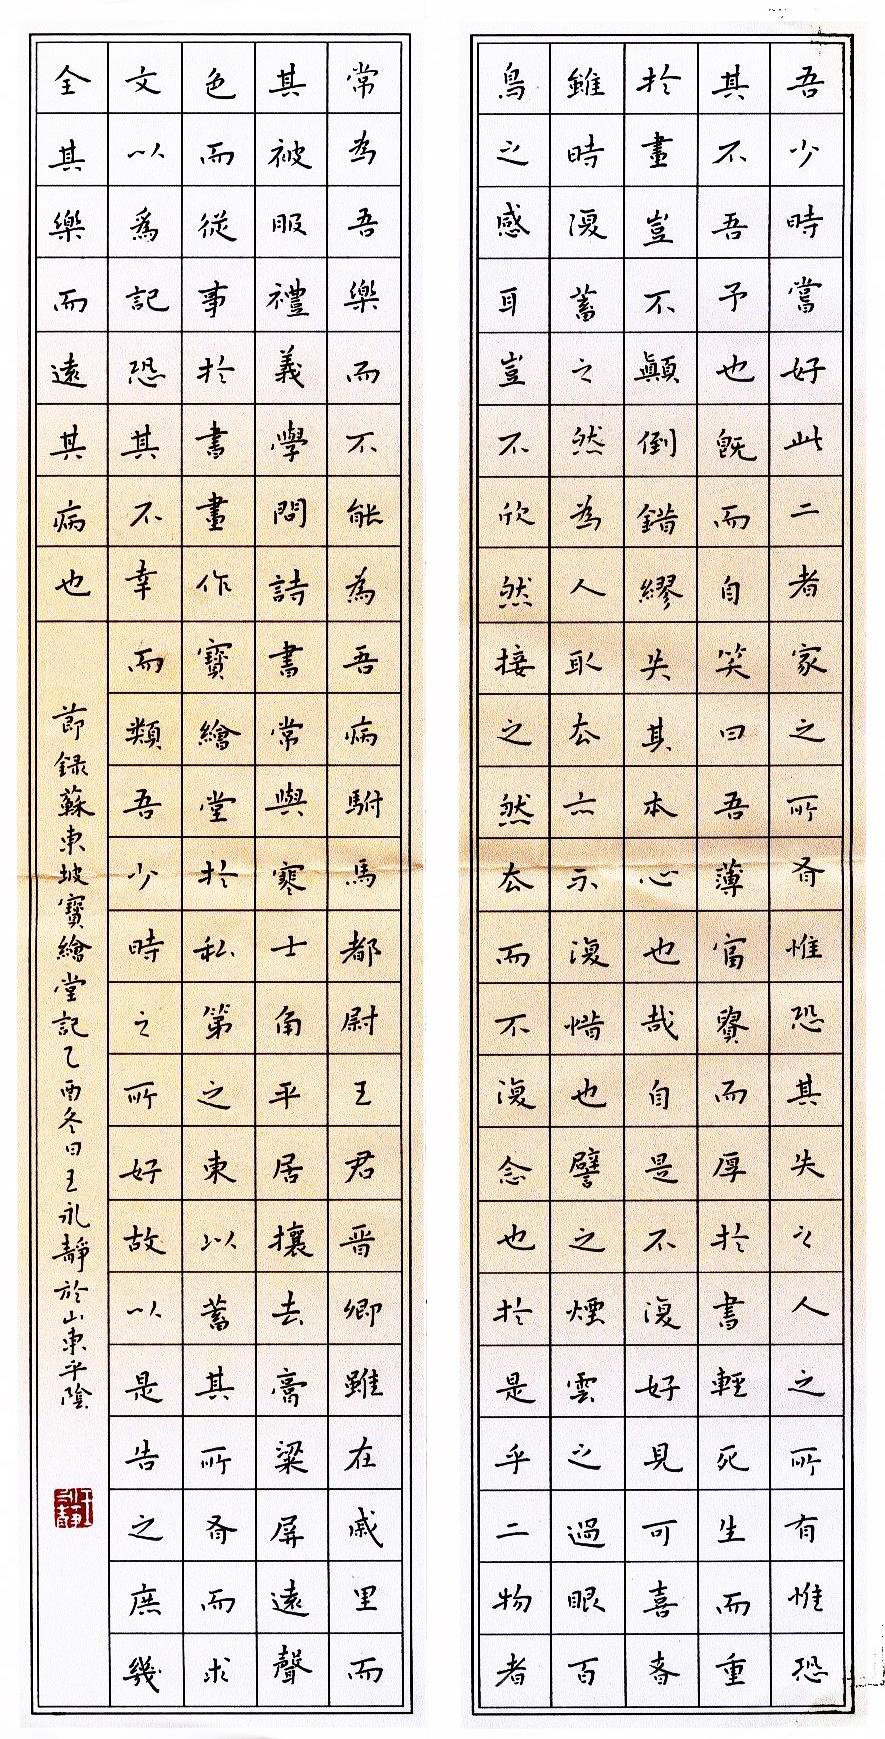 吾少時嘗好此二者家之所有惟恐其失之人之所有惟恐
其不吾予也既而自笑曰吾薄富貴而厚於書輕死生而重
於畫豈不顛倒錯繆失其本心也哉自是不復好見可喜者
雖時復蓄之然為人取去亦不復惜也譬之煙雲之過眼百
鳥之感耳豈不欣然接之然去而不復念也於是乎二物者
常為吾樂而不能為吾病駙馬都尉王君晉卿雖在戚里而
其被服禮義學問詩書常與寒士角平居攘去膏粱屏遠聲
色而從事於書畫作寶繪堂於私第之東以蓄其所有而求
文以為記恐其不幸而類吾少時之所好故以是告之庶幾
全其樂而遠其病也
節錄蘇東坡寶繪堂記乙酉冬日王永靜於山東平陰